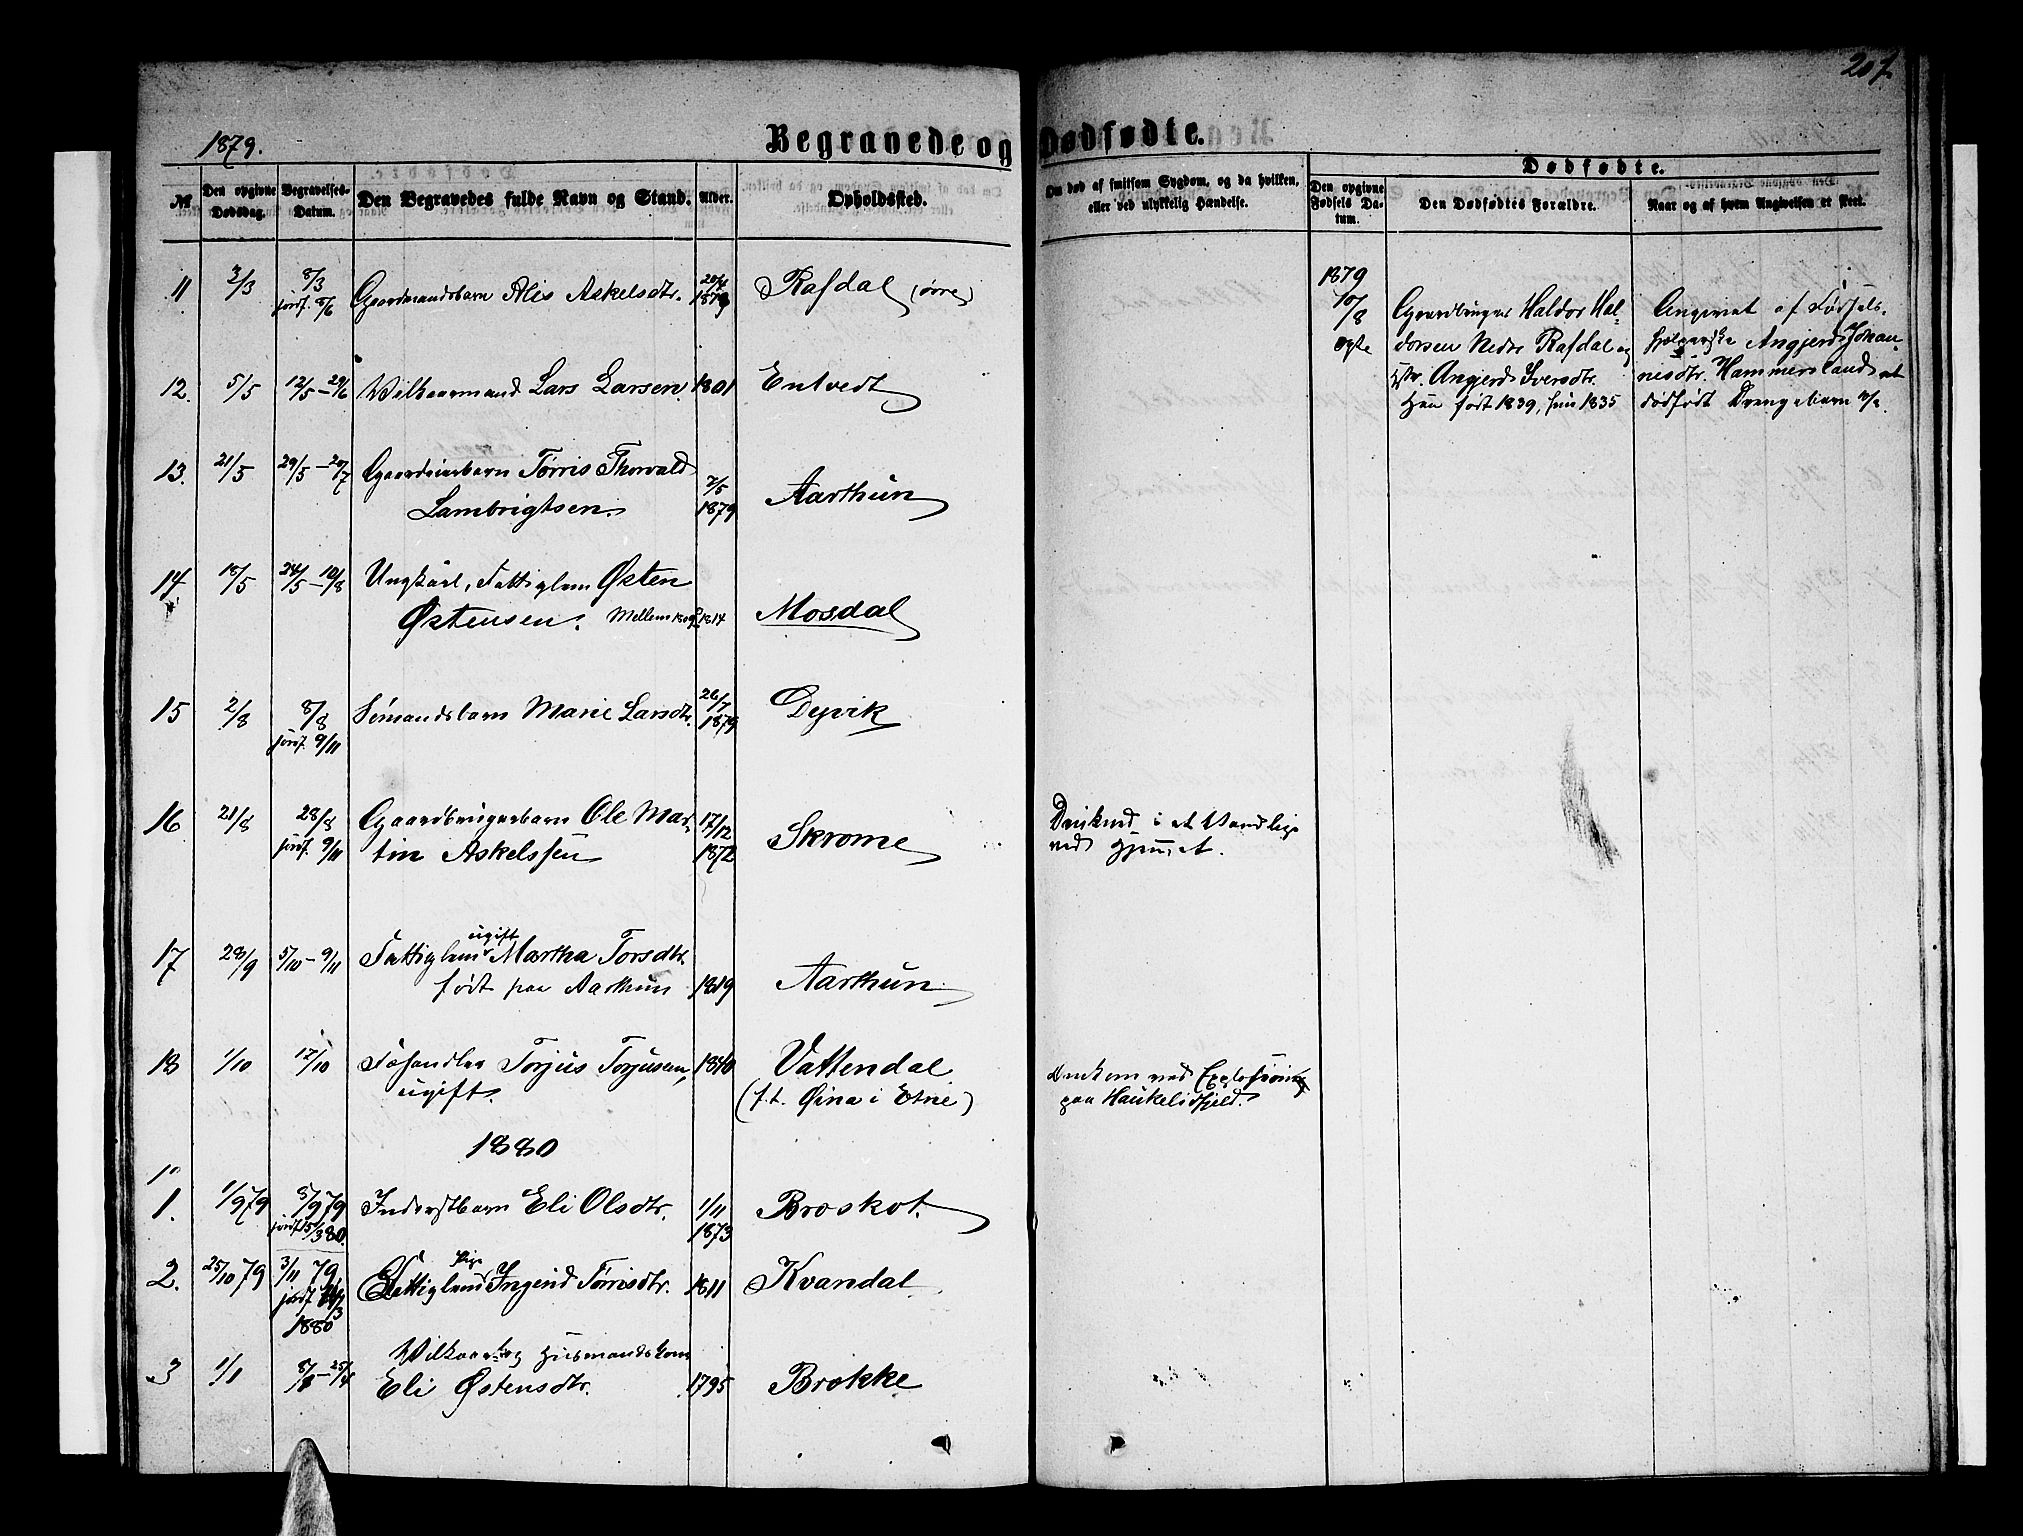 207.
1879.
Begravede og Dødfødte.
Dødfødte.
№
Den opgivne Dødsdag.
Begravelses-Datum.
Den Begravedes fulde Navn og Stand.
Alder.
Opholdssted.
Om død af smitsom Sygdom, og da hvilken,
eller ved ulykkelig Hændelse.
Den opgivne Fødsels Datum.
Den Dødfødtes Forældre.
Naar og af hvem Angivelsen er skeet.
11 3/3 8/3 Gaardmandsbarn Alis Askelsdtr. 1879 Rafdal (øvre)
jordf. 8/6
12. 5/5 12/5 – 29/6 Vilkaarmand Lars Larsen 1801 Entvedt
13. 21/5 29/5 – 20/7 Gaardeierbarn Tørris Thorvald
Lambrigtsen. 7/5 1879 Aarthun
14. 18/5 24/5 – 10/8 Ungkarl, Fattiglem Østen
Østensen. Mellem 1809 & 1814 Mosdal
15 2/8 8/8 Sømandsbarn Marie Larsdtr. 26/7 1879 Dyvik
jordf. 9/11
16 21/8 28/8 Gaardbrugerbarn Ole Mar-
jordf. 9/11 tin Askelssen 17/12 1872 Skrome
ved
17 28/9 5/10 – 9/11 Fattiglem ugift Martha Torsdtr.
født paa Aarthun 1819 Aarthun
18 1/10 17/10 Fæhandler Torjus Torjusen, 1840 Vattendal
ugift. (f.t. Øina i Etne)
omkom ved Explosion
paa Haukelidfjeld.
1880
1. 1/9 79 8/9 79 Inderstbarn Eli Olsdtr. 1/11 1873 Broskot.
jordf. 15/3 80.
2. 25/10 79 3/11 79 Fattiglem Pige Ingerid Tørrisdtr. 1811 Kvandal
jordf.
1880
3 1/1 8/1 – 25/4 Vilkaar og Husmandskone
Eli Østensdtr. 1795 Brokke
1879
10/8
Gaardbruger Haldor Hal-
dorsen Nedre Rafdal og
Hstr. Angjerd Iversdtr.
Han født 1839, hun 1835
Angivet af Fødsels-
hjelperske Angjerd Johan-
nesdtr. Hammersland et
dødfødt Drengebarn